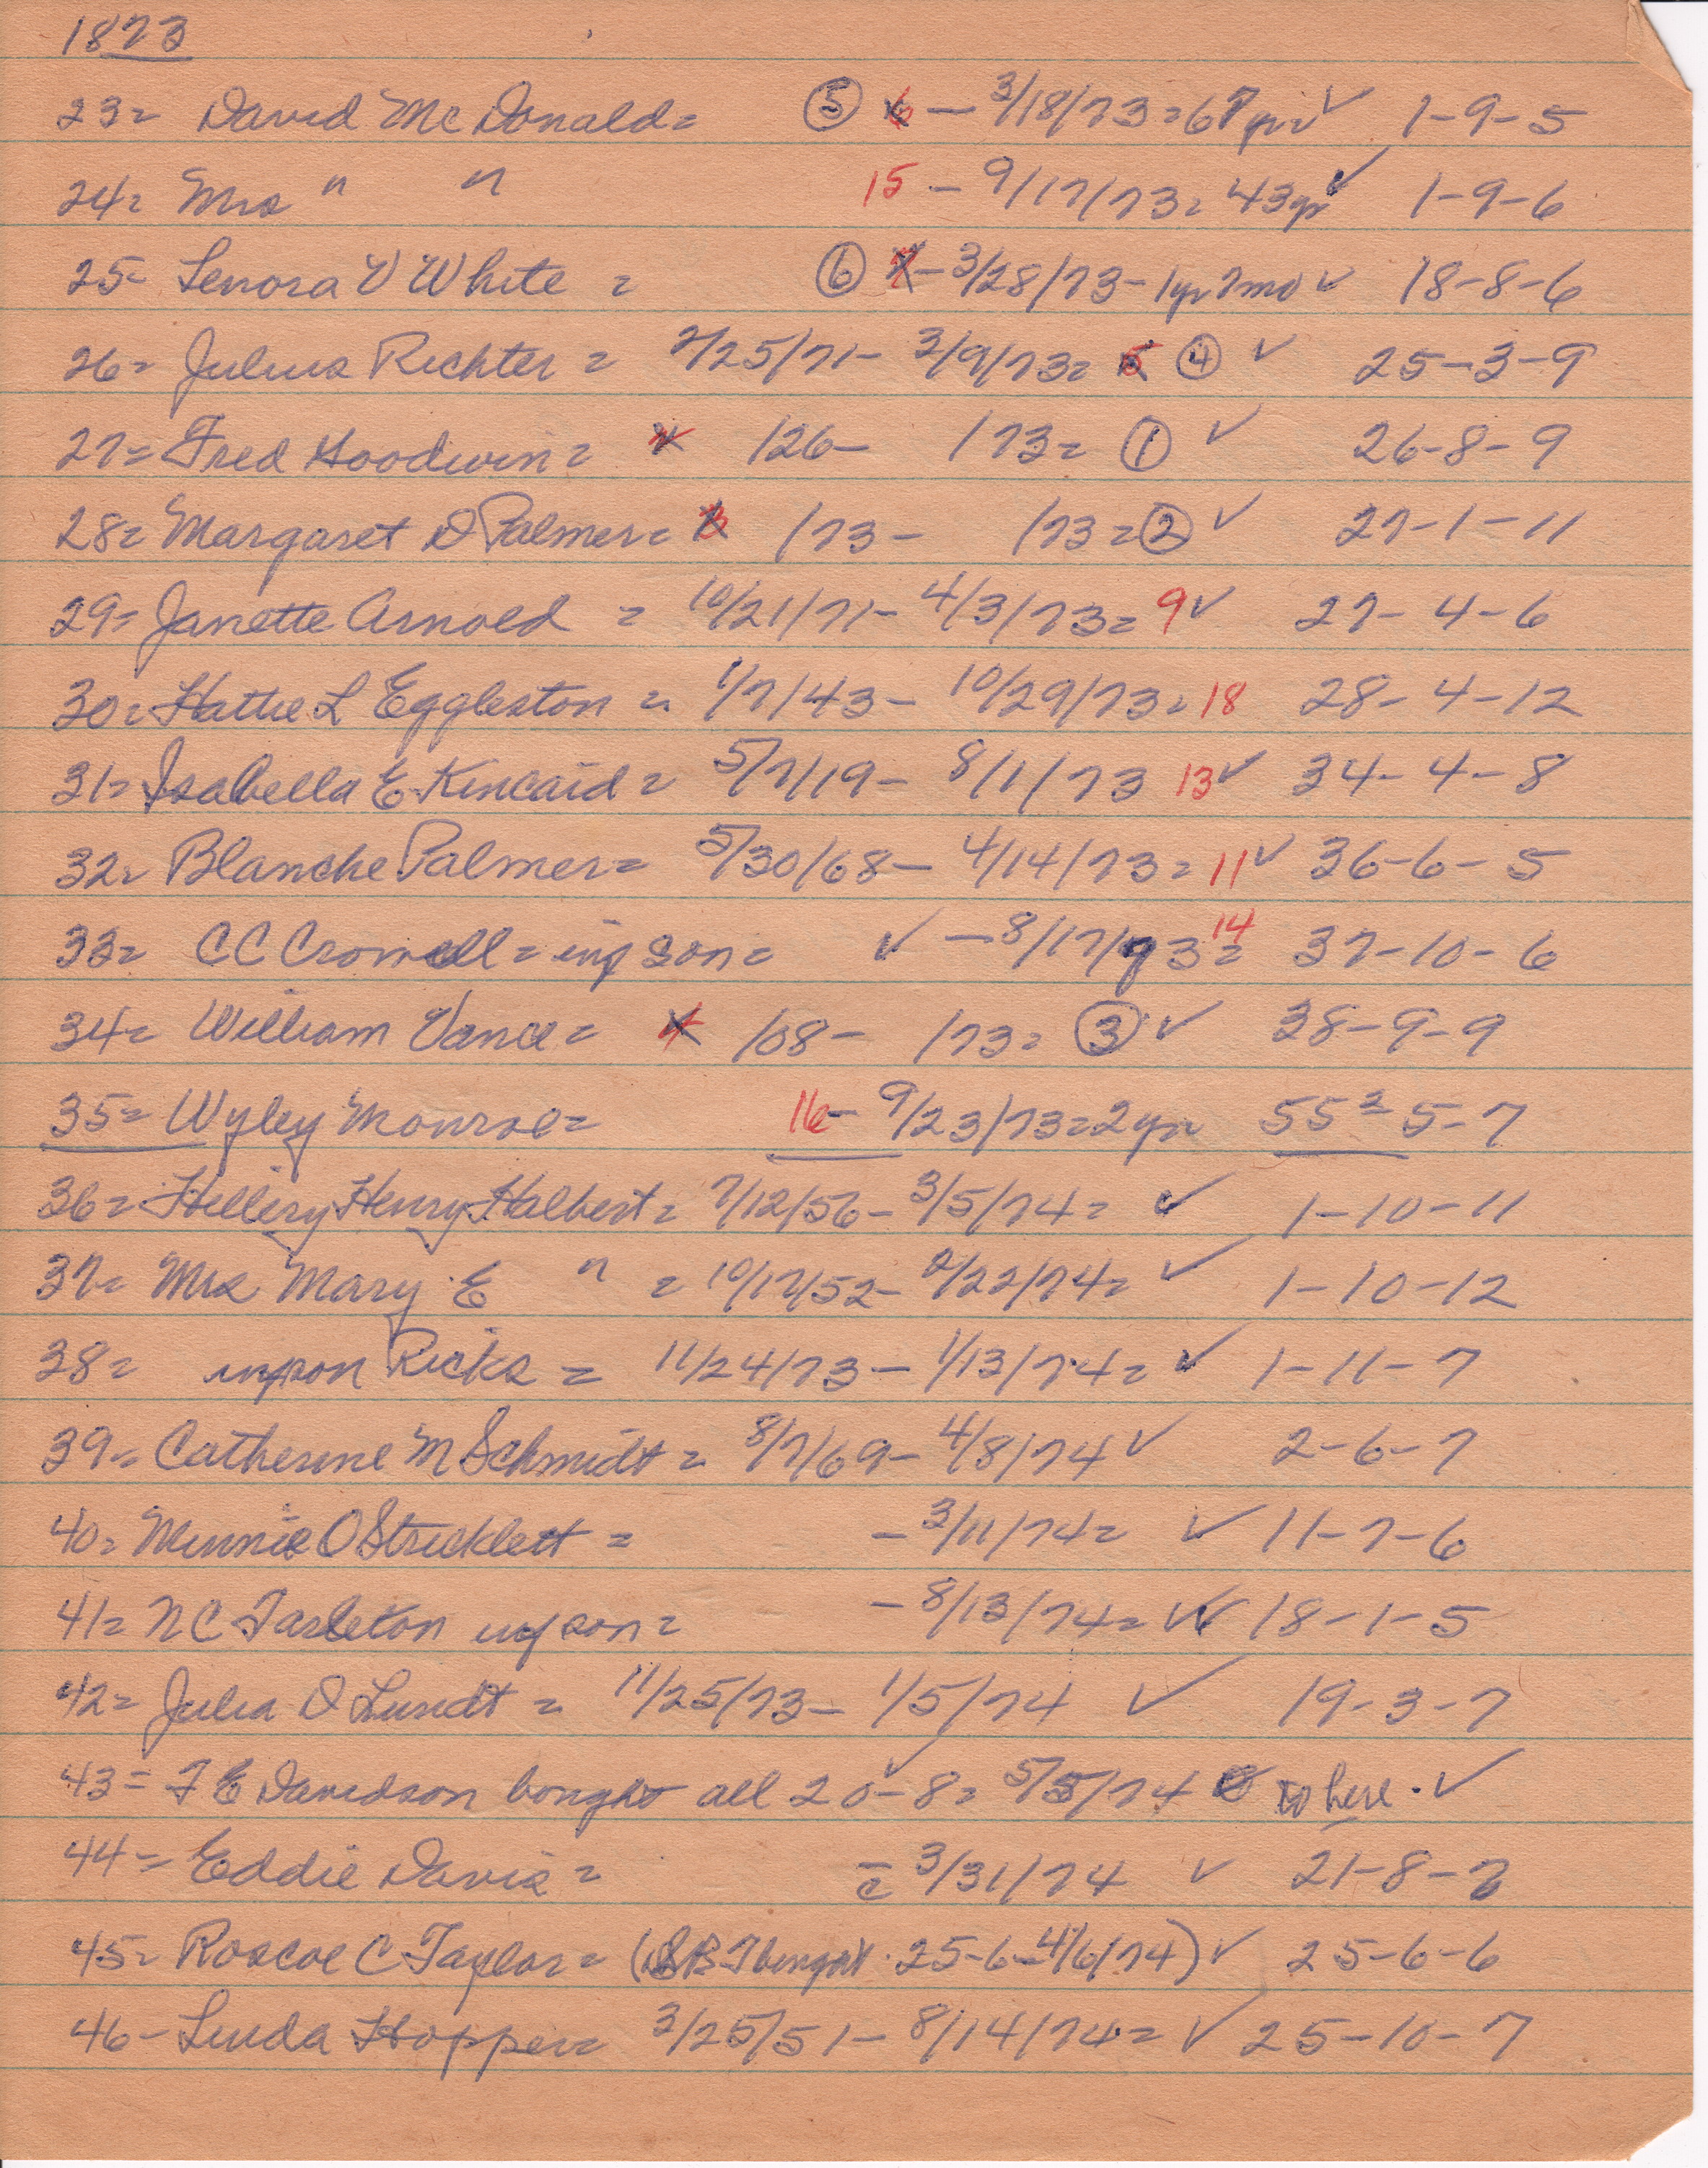 1873
23= David McDonald= ⑤ 6 — 3/18/73=67yr ✓ 1-9-5
24= Mrs " " 15 — 9/17/73= 43yr ✓ 1-9-6
25- Lenora V White = ⑥ 7 — 3/28/73-1yr 7mo ✓ 18-8-6
26= Julius Richter = 2/25/71- 3/9/73= 5 ④ ✓ 25-3-9
27= Fred Goodwin= 2 /26- /73= ① ✓ 26-8-9
28= Margaret D Palmer= 3 /73- /73=② ✓ 27-1-11
29= Janette Arnold = 10/21/71- 4/3/73= 9 ✓ 27-4-6
30= Hattie L Eggleston = 1/7/43- 10/29/73= 18 28-4-12
31= Isabella E Kincaid= 5/7/19- 8/1/73 13 ✓ 34-4-8
32= Blanche Palmer= 5/30/68- 4/14/73= 11 ✓ 36-6-5
33= C C Crowell = inf son= ✓ — 8/17/73= 14 37-10-6
34= William Vance= 4 /08- /73= ③ ✓ 38-9-9
35= Wyley Monroe= 16- 9/23/73=2yr 55=5-7
36= Hillery Henry Halbert= 7/12/56- 3/5/74= ✓ 1-10-11
37= Mrs Mary E " = 10/17/52- /22/74= ✓ 1-10-12
38= infson Ricks = 11/24/73- 1/13/74= ✓ 1-11-7
39= Catherine M Schmidt= 8/7/69- 4/8/74 ✓ 2-6-7
40= Minnie O Stricklett = - 3/11/74= ✓ 11-7-6
41= N C Tarleton inf son= - 8/13/74= ✓✓ 18-1-5
42= Julia D Lundt = 11/25/73- 1/5/74 ✓ 19-3-7
43= F E Davidson bought all 20-8= 5/5/74 to here. ✓
44= Eddie Davis= = 3/31/74 ✓ 21-8-7
45= Roscoe C Taylor= ( 25-6-4/6/74) ✓ 25-6-6
46- Linda Hopper= 3/25/51- 8/14/74= ✓ 25-10-7